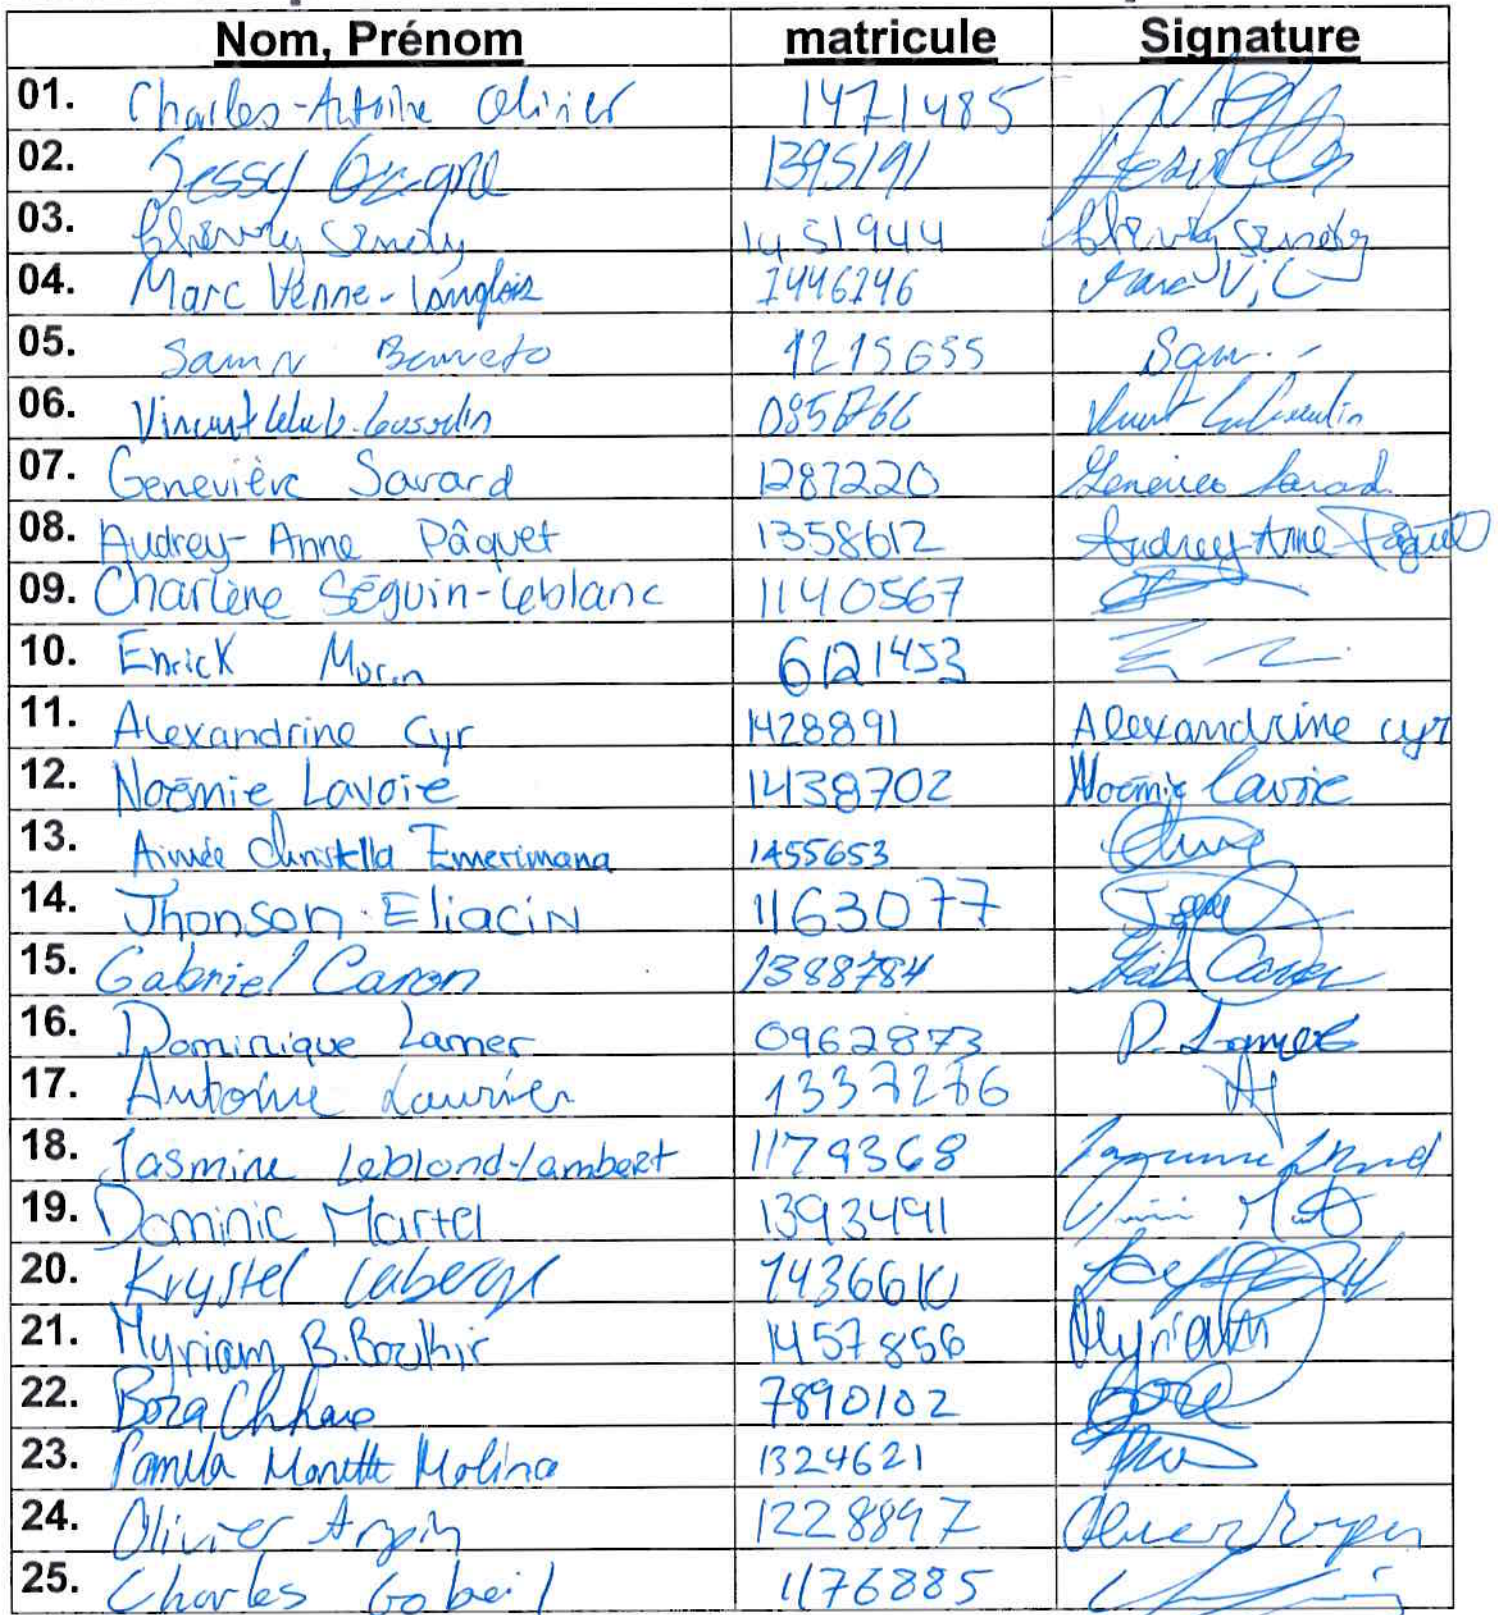 Nom, Prénom matricule Signature
01. Charles-Antoine Olivier 1471485
02. Jessy Gagné 1395191
03. 1451944
04. Marc Venne-Langlois 1446246 Marc V.L
05. Samir Barreto 1215655 Sam
06. Vincent 0856766
07. Geneviève Savard 1287220 Geneviève Savard
08. Audrey-Anne Pâquet 1358612 Audrey-Anne Pâquet
09. Charlène Séguin-Leblanc 11140567
10. Enrick Morin 6121453
11. Alexandrine Cyr 1428891 Alexandrine cyr
12. Noémie Lavoie 1438702 Noémie Lavoie
13. Aimée Christella Emerimana 1455653
14. Jhonson Eliacin 1163077
15. Gabriel Caron 1388784 Caron
16. Dominique Lamer 0962873 D. Lamer
17. Antoine Laurier 1337276
18. Jasmine Leblond-Lambert 1179368
19. Dominic Martel 1393491
20. Krystel Laberge 1436610
21. Myriam B.Boukhir 1457856 Myriam
22. Bora Chhave 7890102 Bora
23. Pamela Monette Molina 1324621
24. Olivier Arpin 1228897 Olivier Arpin
25. Charles Gobeil 1176885